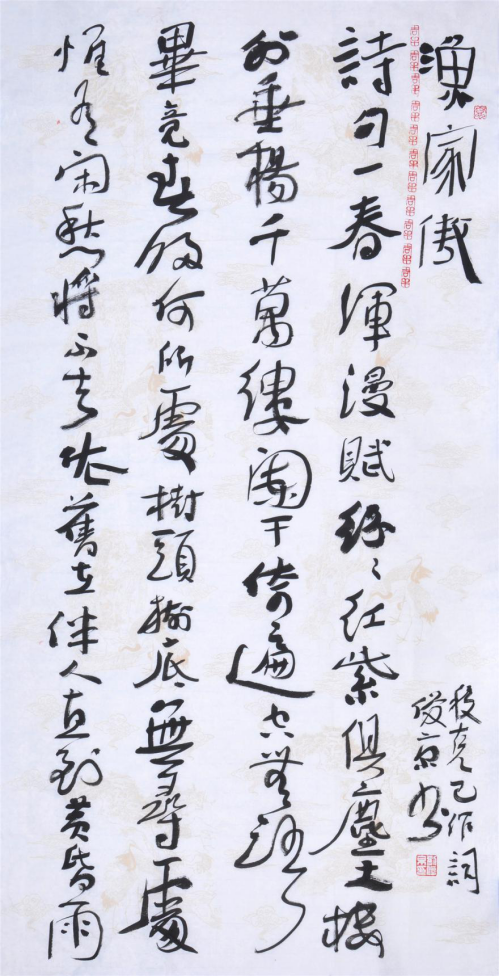 漁家傲
段克己作詞
俊京书
詩句一春渾漫賦紛々紅紫俱塵土樓
外垂楊千萬縷闌干倚遍空無語
畢竟春歸何所處樹頭樹底無尋處
惟有闲愁將不去依舊在伴人直到黄昏雨